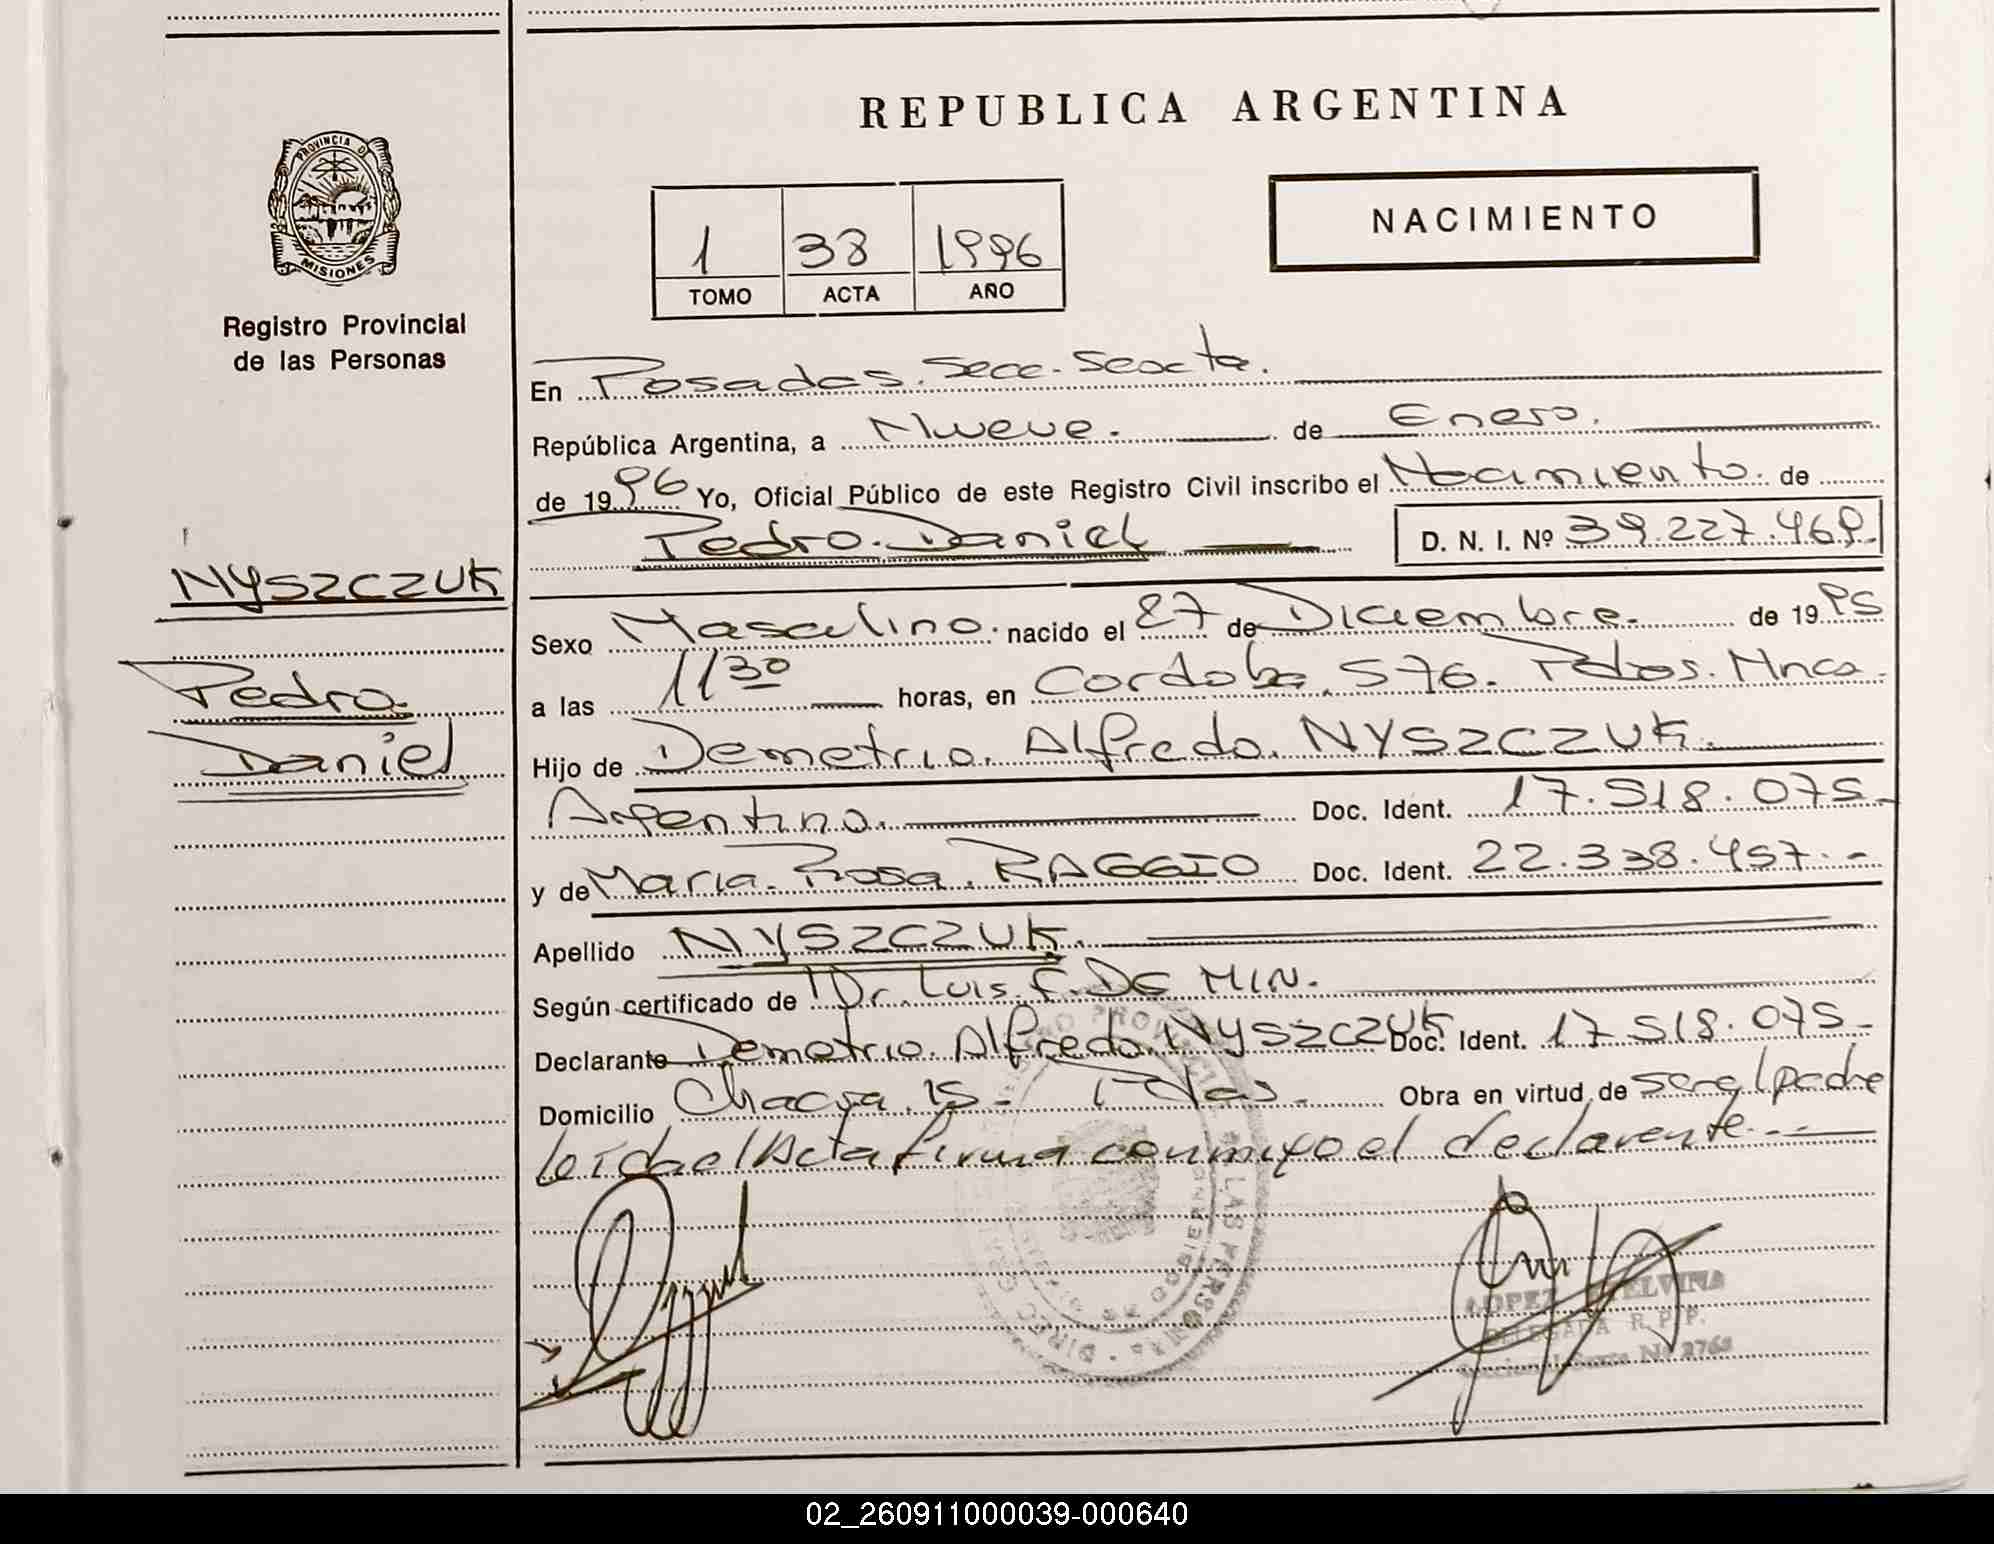 REPUBLICA ARGENTINA
PROVINCIA D MISIONES
Registro Provincial
de las Personas
NACIMIENTO
1 38 1996
TOMO ACTA AÑO
En Posadas. Secc. Sexta.
República Argentina, a Nueve. de Enero.
de 1996 Yo, Oficial Público de este Registro Civil inscribo el Nacimiento. de
Pedro. Daniel D. N. I. Nº 39.227.469.
NYSZCZUK
Pedro.
Daniel
Sexo Masculino. nacido el 27 de Diciembre. de 1995
a las 11 30 horas, en Cordoba. 576. Pdas. Mnes.
Hijo de Demetrio. Alfredo. NYSZCZUK.
Argentino. Doc. Ident. 17.518.075.-
y de Maria. Rosa. RAGGIO Doc. Ident. 22.338.457.-
Apellido NYSZCZUK.
Según certificado de Dr. Luis. F. DE MIN.
Declarante Demetrio. Alfredo. NYSZCZUK Doc. Ident. 17.518.075.-
Domicilio Chacra. 15.- Pdas.- Obra en virtud de ser el padre
leida el Acta firma conmigo el declarante.--
LOPEZ ETELVINA
DELEGADA R. P. P.
Seccional Sexta Nº 2768
02_260911000039-000640